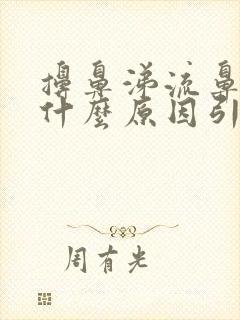 擤鼻涕流鼻
什麼原因引
周有光